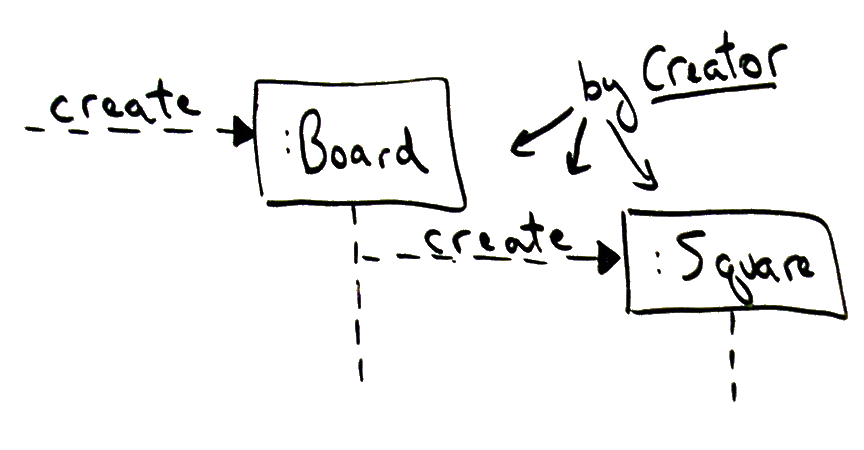 create
:Board
by Creator
create
:Square